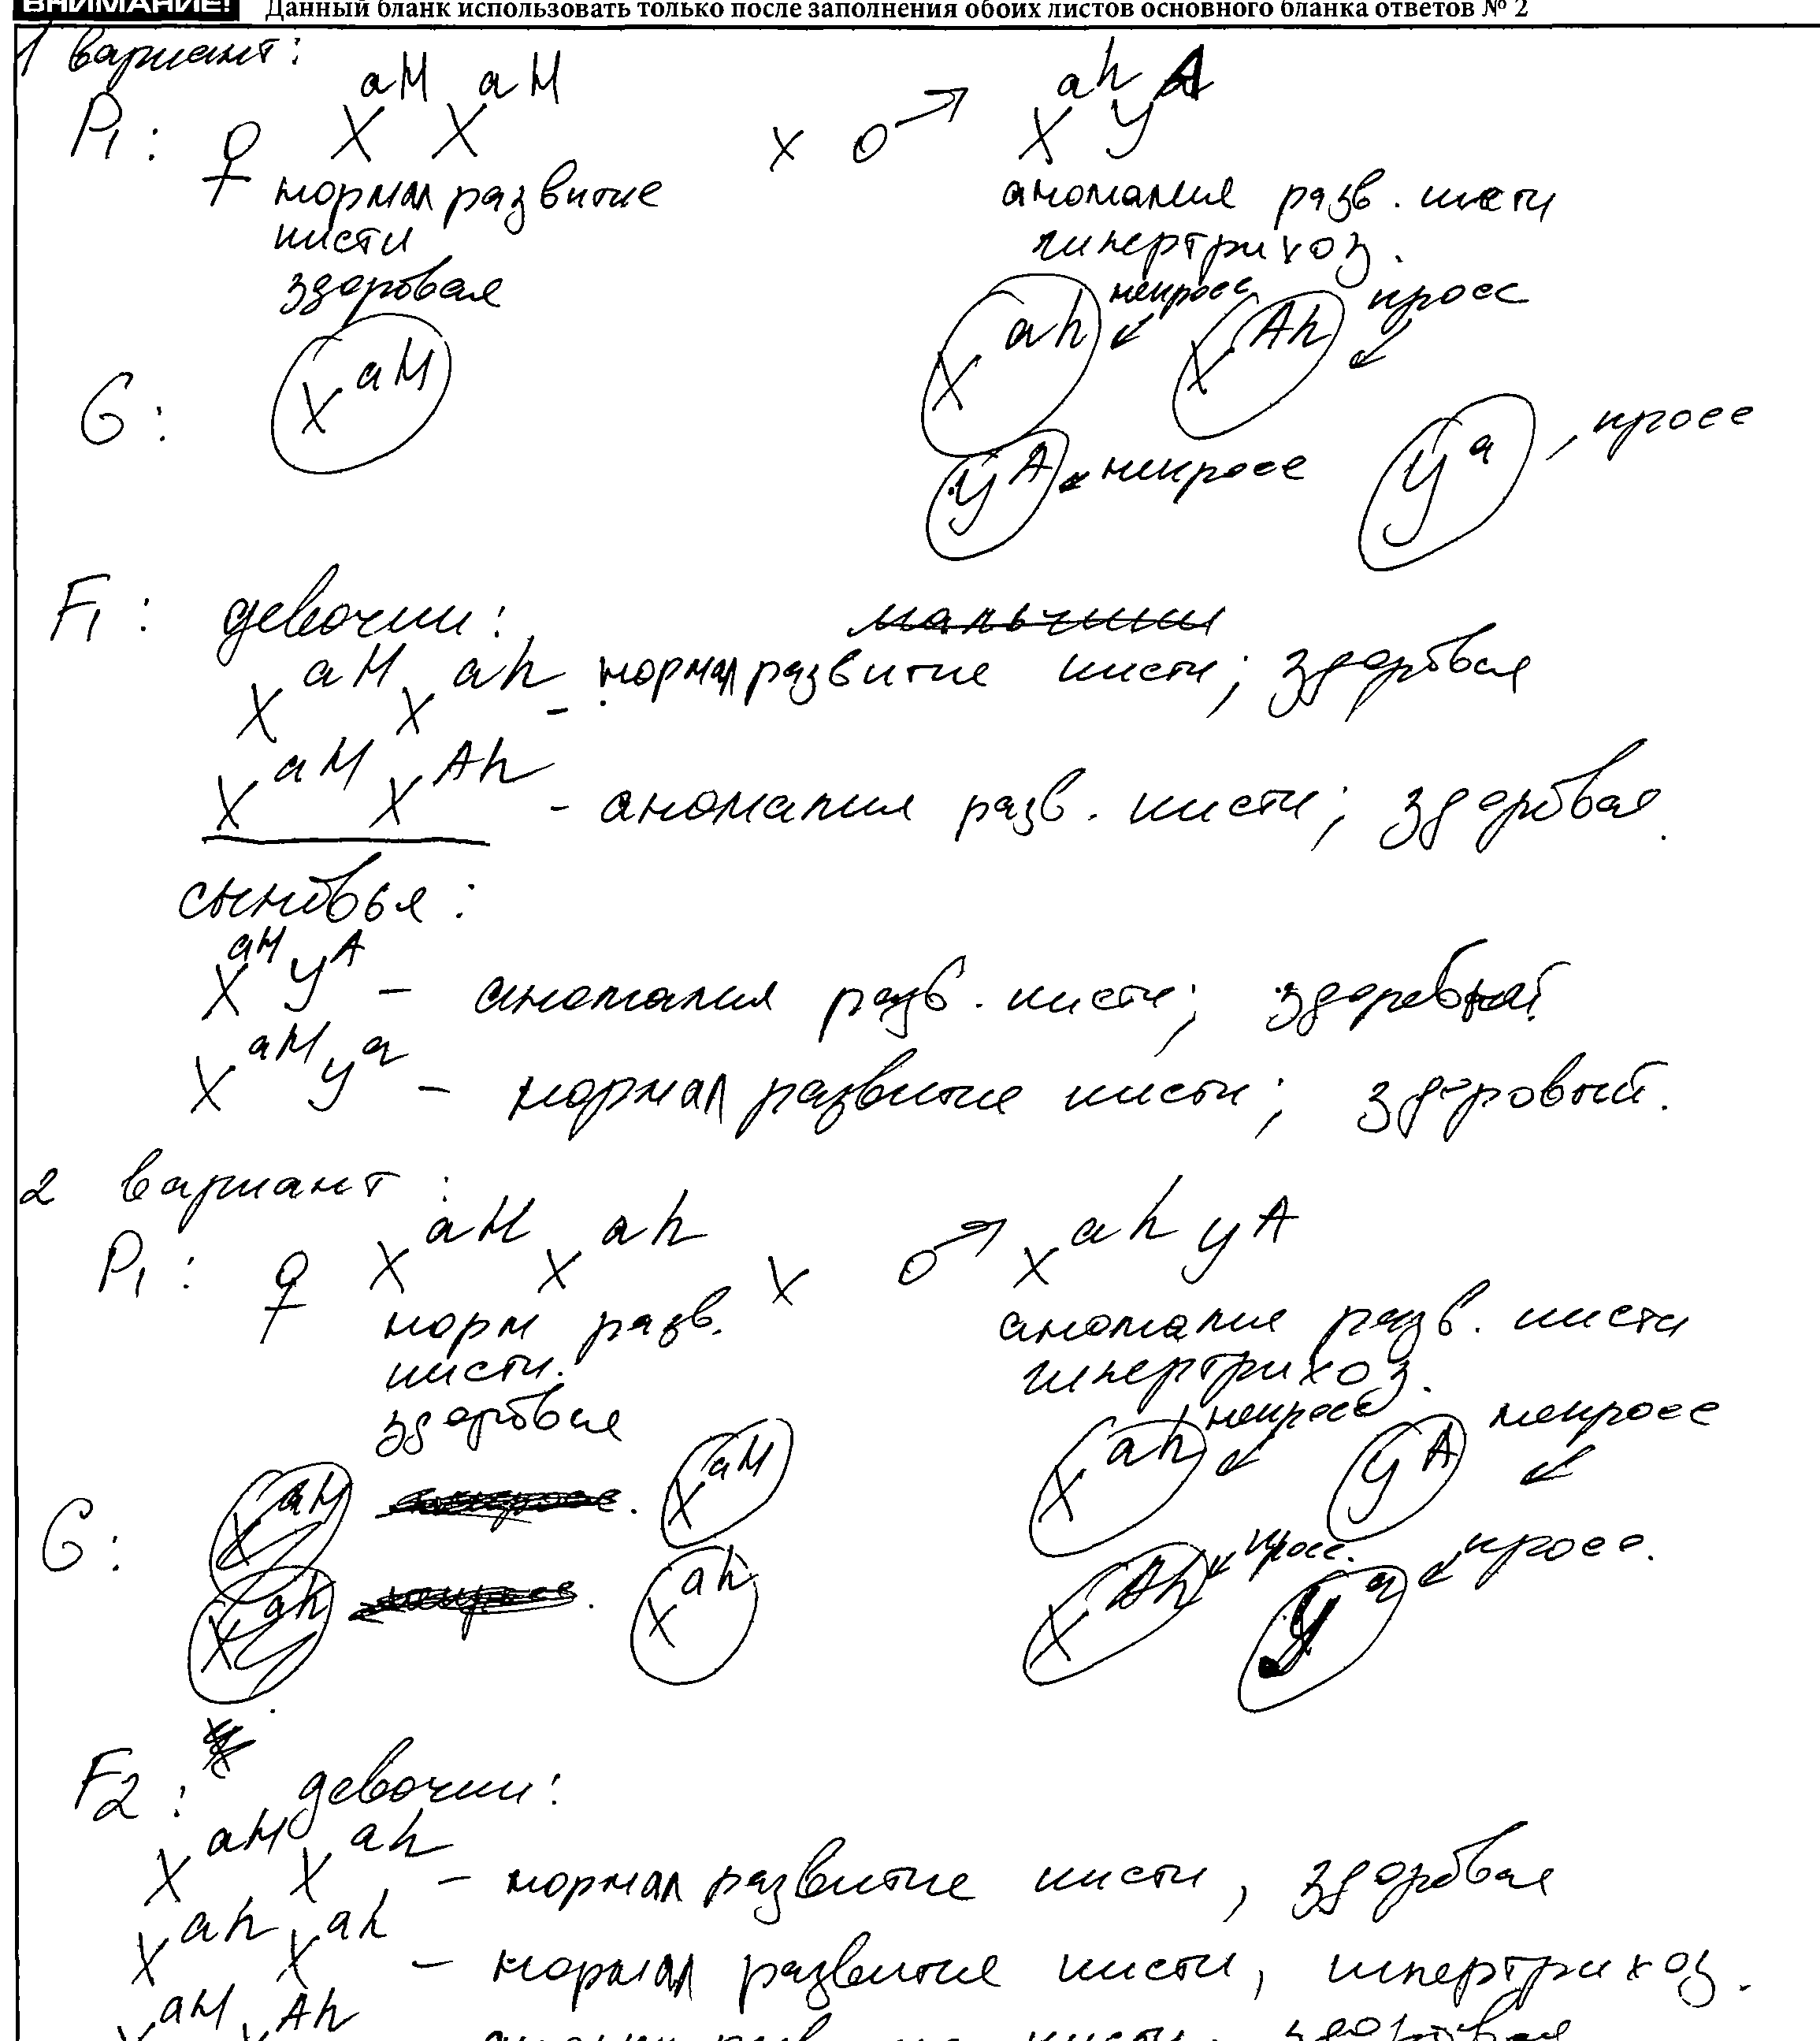 ВНИМАНИЕ! Данный бланк использовать только после заполнения обоих листов основного бланка ответов № 2
1 вариант:
P₁: ♀ XᵃᴴXᵃᴴ x ♂ XᵃʰYᴬ
нормал развитие аномалия разв. кисти
кисти гипертрихоз.
здоровая
G: Xᵃᴴ Xᵃʰ некросс Xᴬʰ кросс
Yᴬ некросс Yᵃ, кросс
F₁: девочки: мальчики
XᵃᴴXᵃʰ - нормал развитие кисти; здоровая
XᵃᴴXᴬʰ - аномалия разв. кисти; здоровая.
сыновья:
XᵃᴴYᴬ - аномалия разв. кисти; здоровый.
XᵃᴴYᵃ - нормал развитие кисти; здоровый.
2 вариант:
P₁: ♀ XᵃᴴXᵃʰ x ♂ XᵃʰYᴬ
норм разв. аномалия разв. кисти
кисти. гипертрихоз.
здоровая
G: Xᵃᴴ Xᵃᴴ Xᵃʰ некросс Yᴬ некросс
Xᵃʰ Xᵃʰ Xᴬʰ кросс. Yᵃ кросс.
F2: девочки:
XᵃᴴXᵃʰ - нормал развитие кисти, здоровая
XᵃʰXᵃʰ - нормал развитие кисти, гипертрихоз.
XᵃᴴXᴬʰ кисти, здоровая